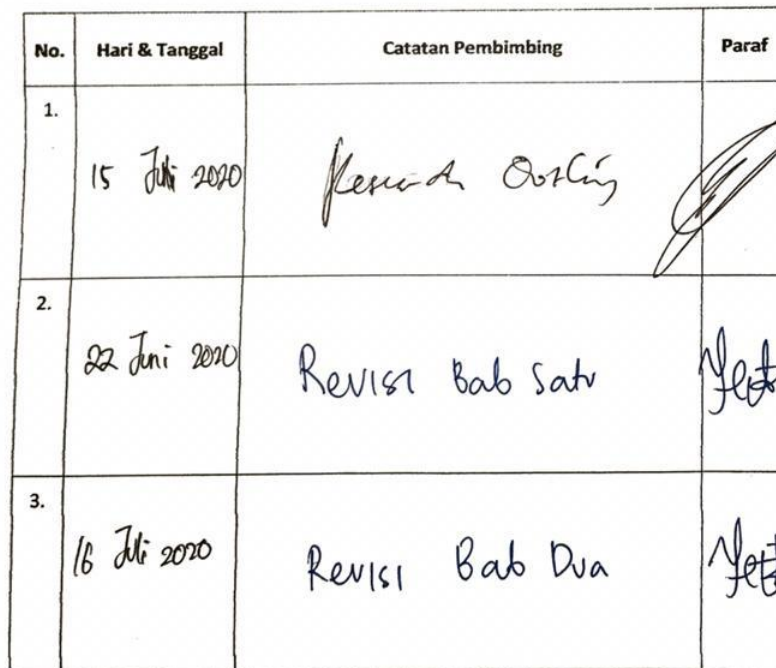 No. Hari & Tanggal Catatan Pembimbing Paraf
1.
15 Juli 2020
2.
22 Juni 2020 Revisi Bab Satu
3.
16 Juli 2020 Revisi Bab Dua